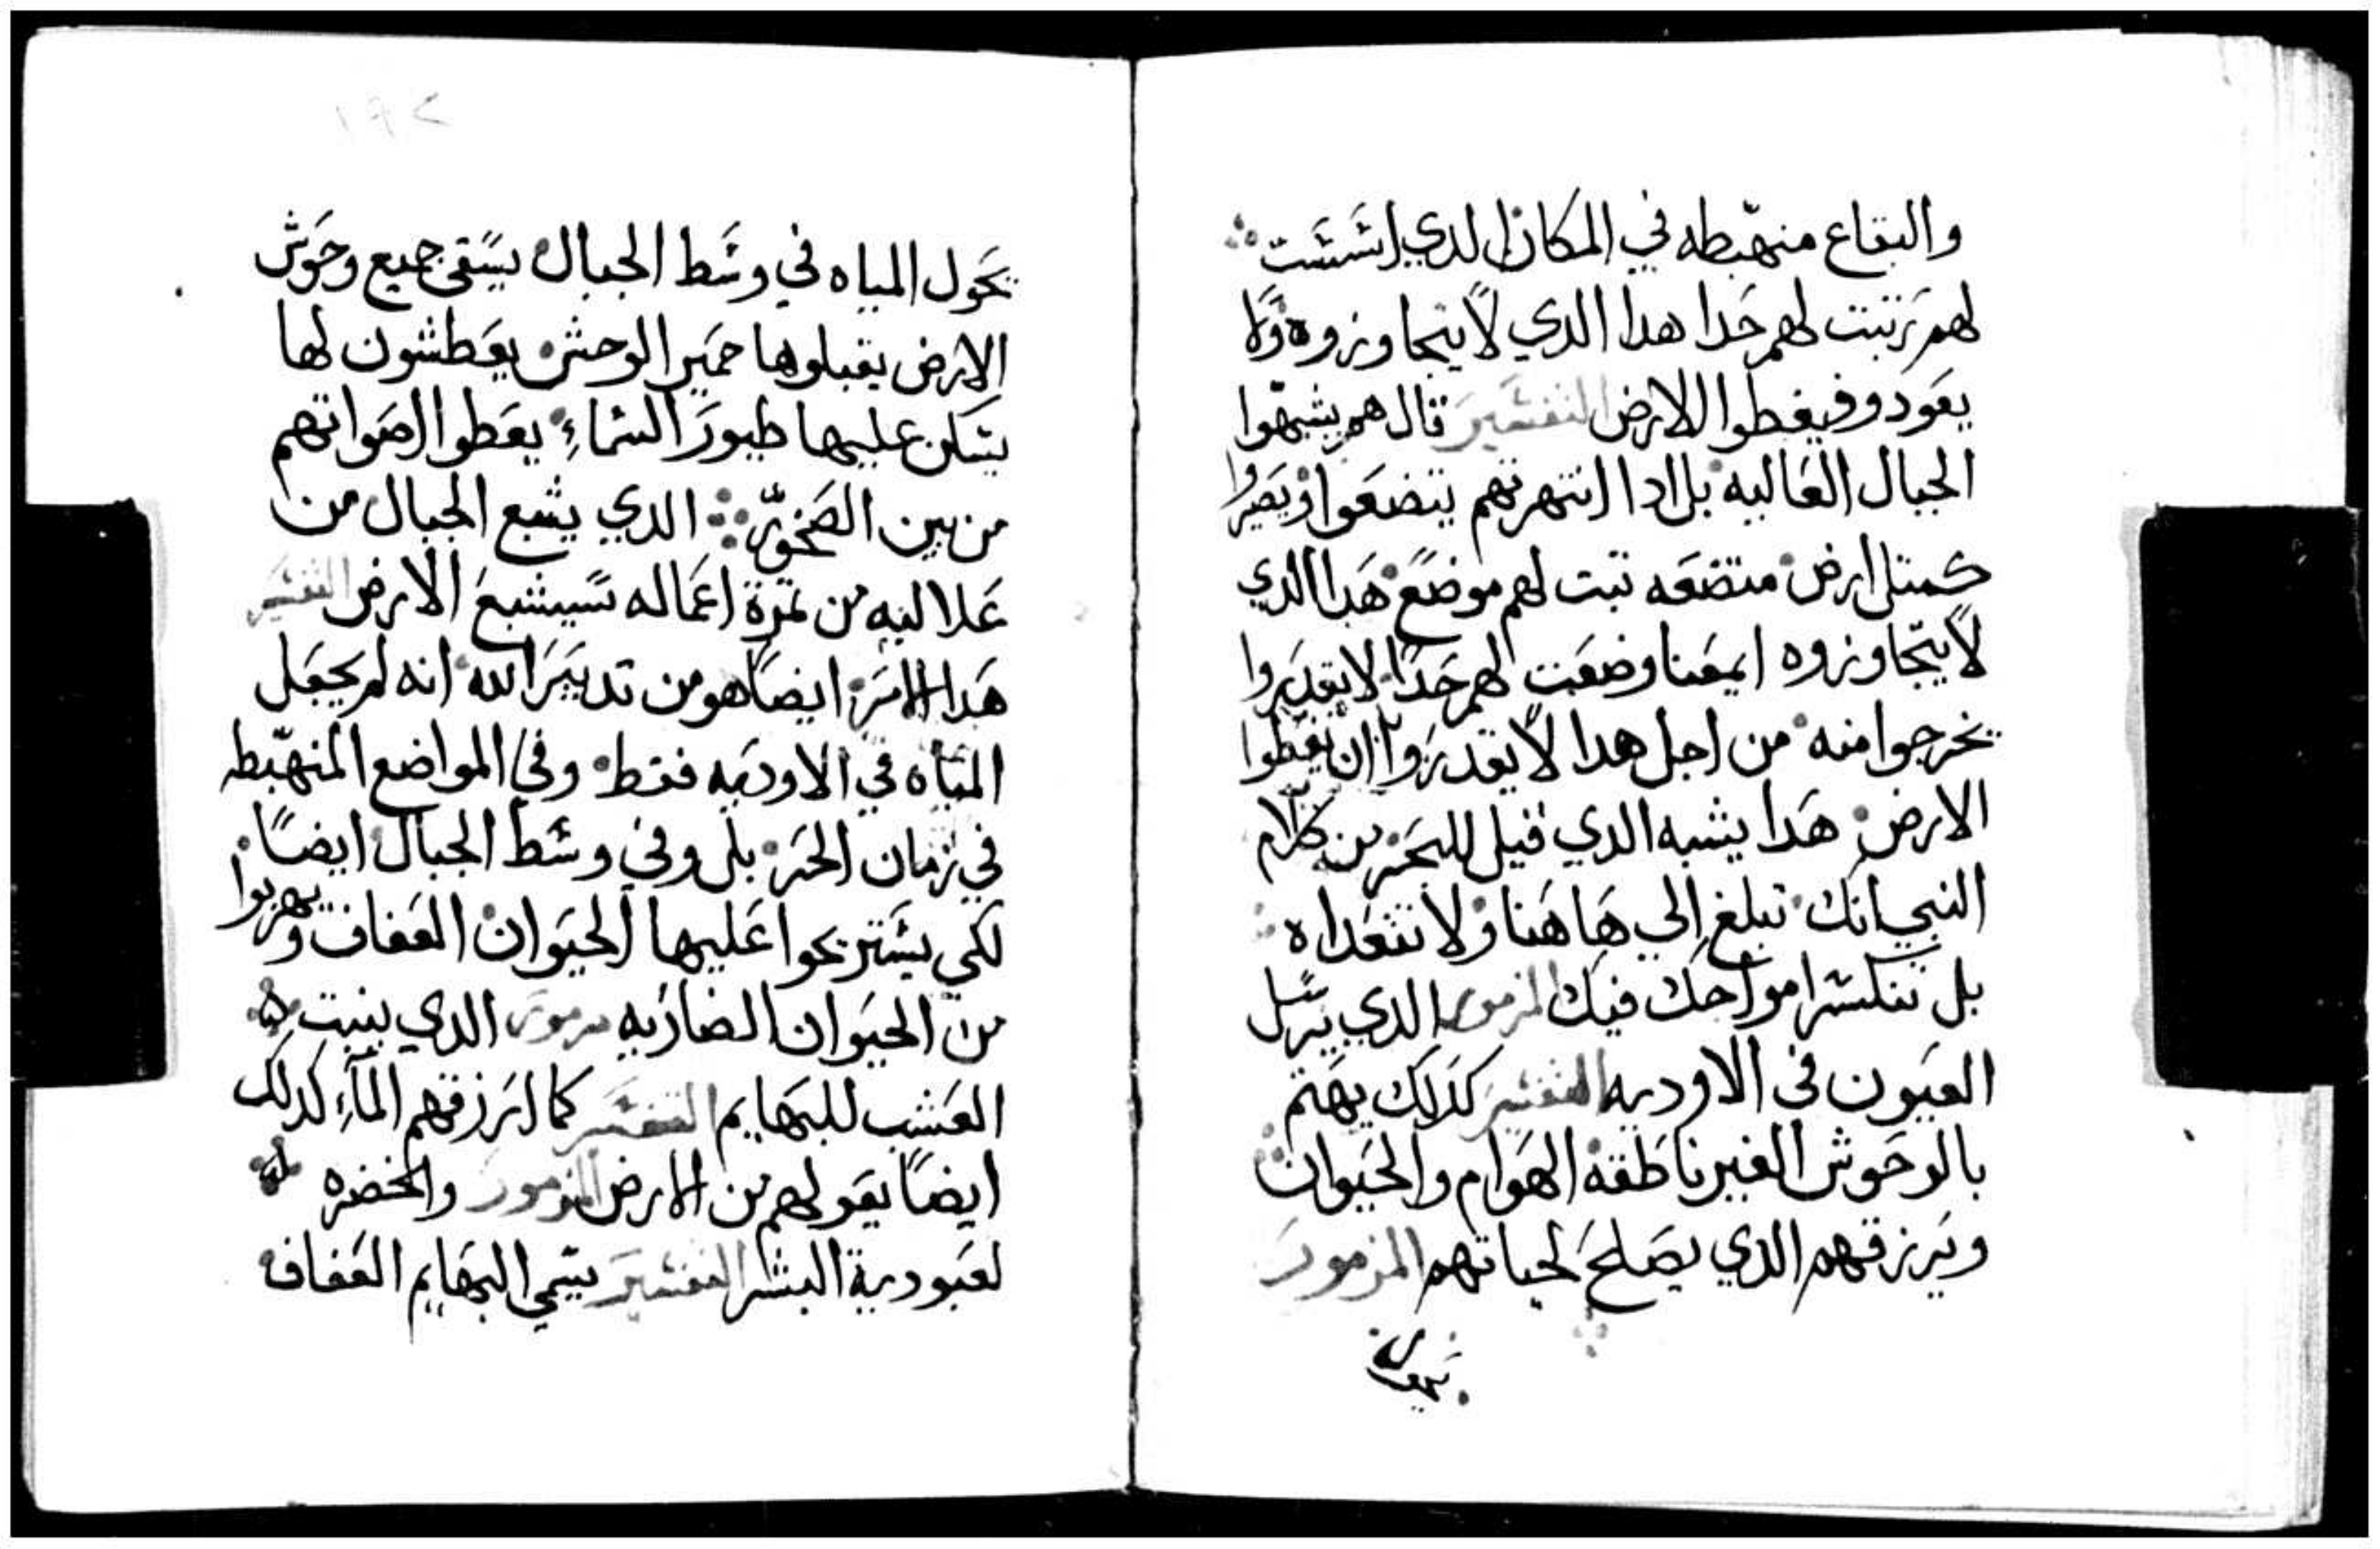 والبقاع منهبطه في المكان الدي اسست
لهم رتبت لهم حدا هدا الدي لا يتجاوزوه ولا
يعودو فيغطوا الارض التفسير قال هم يشبهوا
الجبال العاليه بل ادا انتهرتهم يتضعوا ويصيروا
كمتل ارض متضعه تبت لهم موضع هدا الدي
لا يتجاوزوه ايمعنا وضعت لهم حدا لا يقدروا
يخرجوا منه من اجل هدا لا يقدروا ان يغطوا
الارض هدا يشبه الدي قيل للبحر من كلام
النبي انك تبلغ الي هاهنا ولا تتعداه
بل تنكسر امواجك فيك المزمور الدي يرسل
العيون في الاوديه التفسير كدلك يهتم
بالوحوش الغير ناطقه الهوام والحيوان
ويرزقهم الدي يصلح لحياتهم المزمور
يحول المياه في وسط الجبال يسقي جميع وحوش
الارض يقبلوها حمير الوحش يعطشون لها
يسكن عليها طيور السماء يعطوا اصواتهم
من بين الصخور الدي يشبع الجبال من
علاليه من تمرة اعماله تشبع الارض التفسير
هدا الامر ايضا هو من تدبير الله انه لم يجعل
المياه في الاوديه فقط وفي المواضع المنهبطه
في زمان الحر بل وفي وسط الجبال ايضا
لكي يستريحوا عليها الحيوان العفاف ويهربوا
من الحيوان الضاريه مزمور الدي ينبت
العشب للبهايم التفسير كما ارزقهم الماء كدلك
ايضا يقولهم من الارض المزمور والخضره
لعبودية البشر التفسير يسمي البهايم العفاف